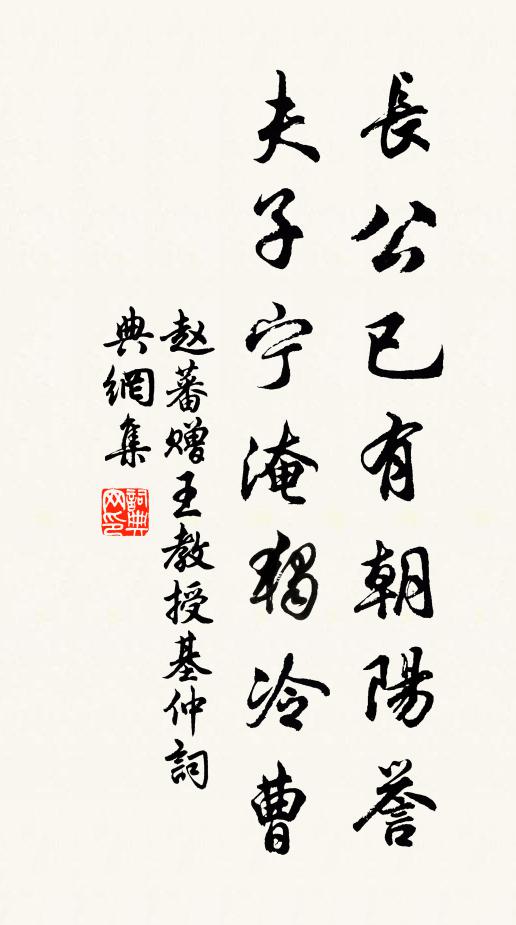 長公已有朝陽譽
夫子宁淹独冷曹
赵蕃赠王教授基仲詞
典網集
詞典
网印